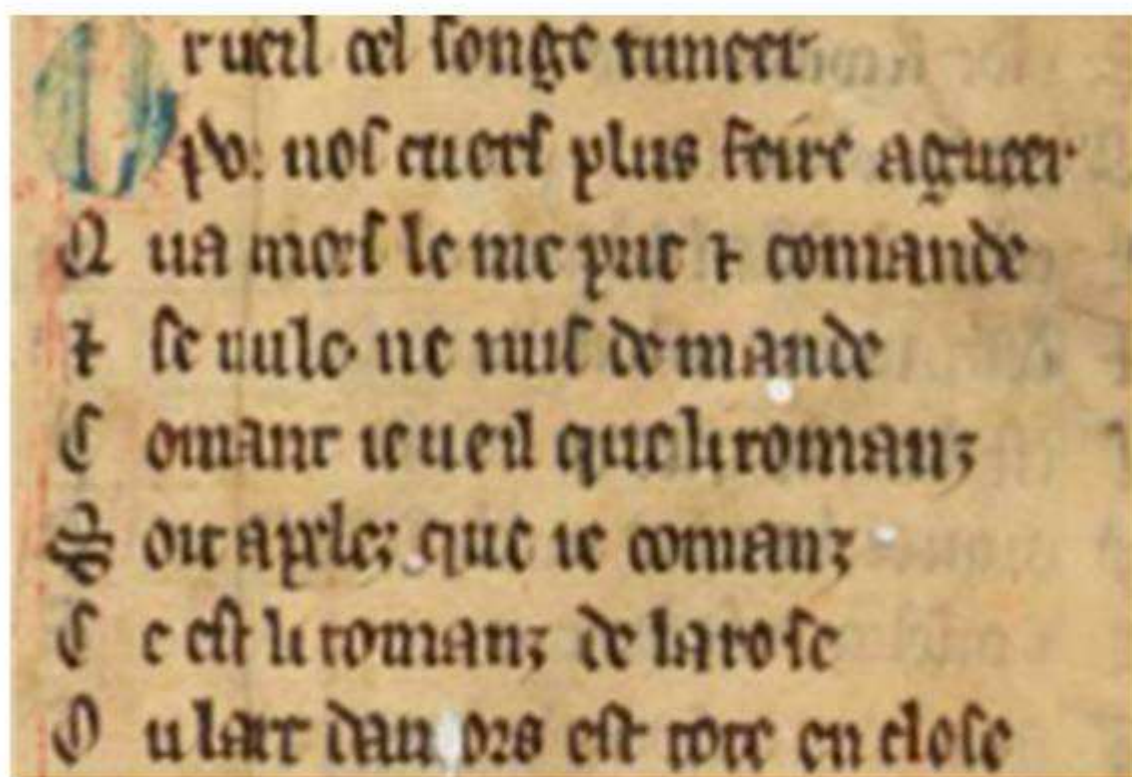 Or ueil cel songe rimeer
Por uos cuers plus feire agueer
Qu amors le me prie ⁊ comande
⁊ se nule ne nus demande
Comant ie ueil que li romanz
Soit apelez que ie comanz
C e est li romanz de la rose
O u lart damors est tote en close